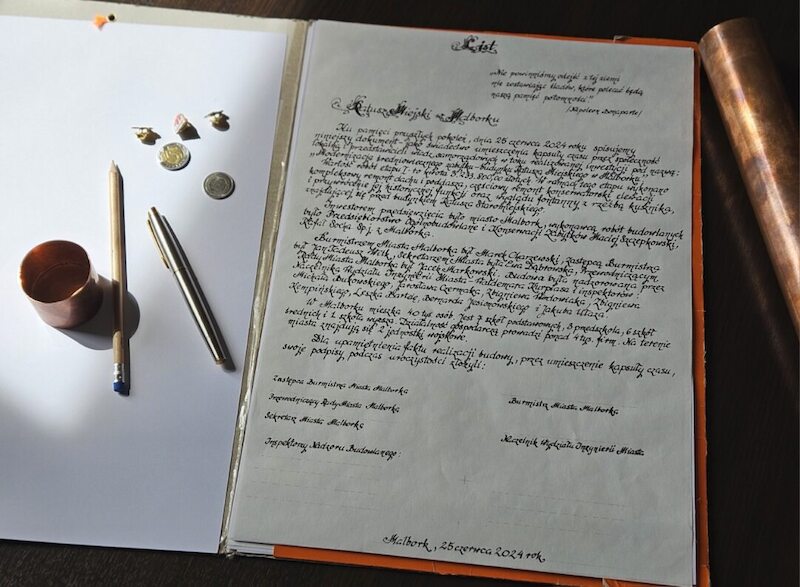 List
„Nie powinniśmy odejść z tej ziemi
nie zostawiając śladów, które polecać będą
naszą pamięć potomności"
/Napoleon Bonaparte/
Ratusz Miejski w Malborku
Ku pamięci przyszłych pokoleń, dnia 25 czerwca 2024 roku spisujemy
niniejszy dokument jako świadectwo umieszczenia kapsuły czasu przez społeczność
lokalną i przedstawicieli władz samorządowych w toku realizowanej inwestycji pod nazwą:
„Modernizacja średniowiecznego zabytku - budynku Ratusza Miejskiego w Malborku".
Wartość robót etapu I to kwota zł. W ramach tego etapu wykonano
kompleksowy remont dachu i poddasza, częściowy remont konserwatorski elewacji
i przywrócenie jej historycznej funkcji oraz wyglądu fontanny z rzeźbą kuśnika,
znajdującej się przed budynkiem Ratusza Staromiejskiego.
Inwestorem przedsięwzięcia było miasto Malbork, wykonawcą robót budowlanych
było Przedsiębiorstwo Ogólnobudowlane i Konserwacji Zabytków Maciej Szczepkowski,
Rafał Socha Sp.j. z Malborka.
Burmistrzem Miasta Malborka był Marek Charzewski, zastępcą Burmistrza
był Jan Tadeusz Wilk, Sekretarzem Miasta była Ewa Dąbrowska, Przewodniczącym
Rady Miasta Malborka był Jacek Markowski. Budowa była nadzorowana przez
Naczelnika Wydziału Inżynierii Miasta Waldemara Kurpiasa i inspektorów:
Michała Bukowskiego, Jarosława Czernaka, Zbigniewa Zbigniewa
Kempińskiego, Leszka Bartas, Bernarda Jasionowskiego i Jakuba
W Malborku mieszka 40 tys. osób. Jest 7 szkół podstawowych, 3 przedszkola, 6 szkół
średnich i 1 szkoła wyższa. Działalność gospodarczą prowadzi ponad 4 tyś. firm. Na terenie
miasta znajdują się 2 jednostki wojskowe.
Dla upamiętnienia faktu realizacji budowy, przez umieszczenie kapsuły czasu,
swoje podpisy podczas uroczystości złożyli:
Zastępca Burmistrza Miasta Malborka
Burmistrz Miasta Malborka
Przewodniczący Rady Miasta Malborka
Sekretarz Miasta Malborka
Naczelnik Wydziału Inżynierii Miasta
Inspektorzy Nadzoru Budowlanego:
Malbork, 25 czerwca 2024 rok